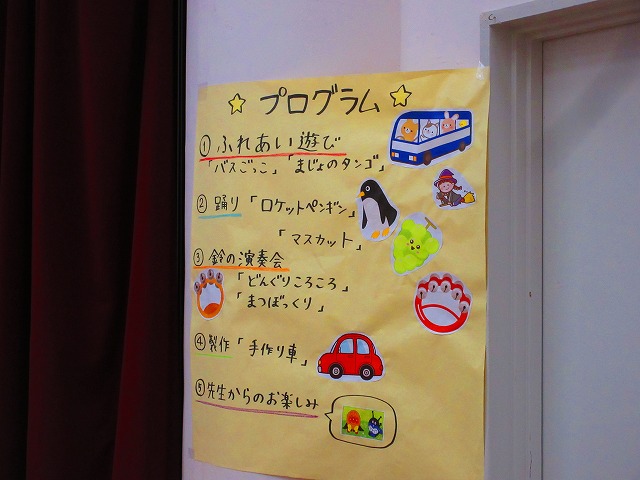 ☆ プログラム ☆
① ふれあい遊び
「バスごっこ」「まじょのタンゴ」
② 踊り「ロケットペンギン」
「マスカット」
③ 鈴の演奏会
「どんぐりころころ」
「まつぼっくり」
④ 製作「手作り車」
⑤ 先生からのお楽しみ